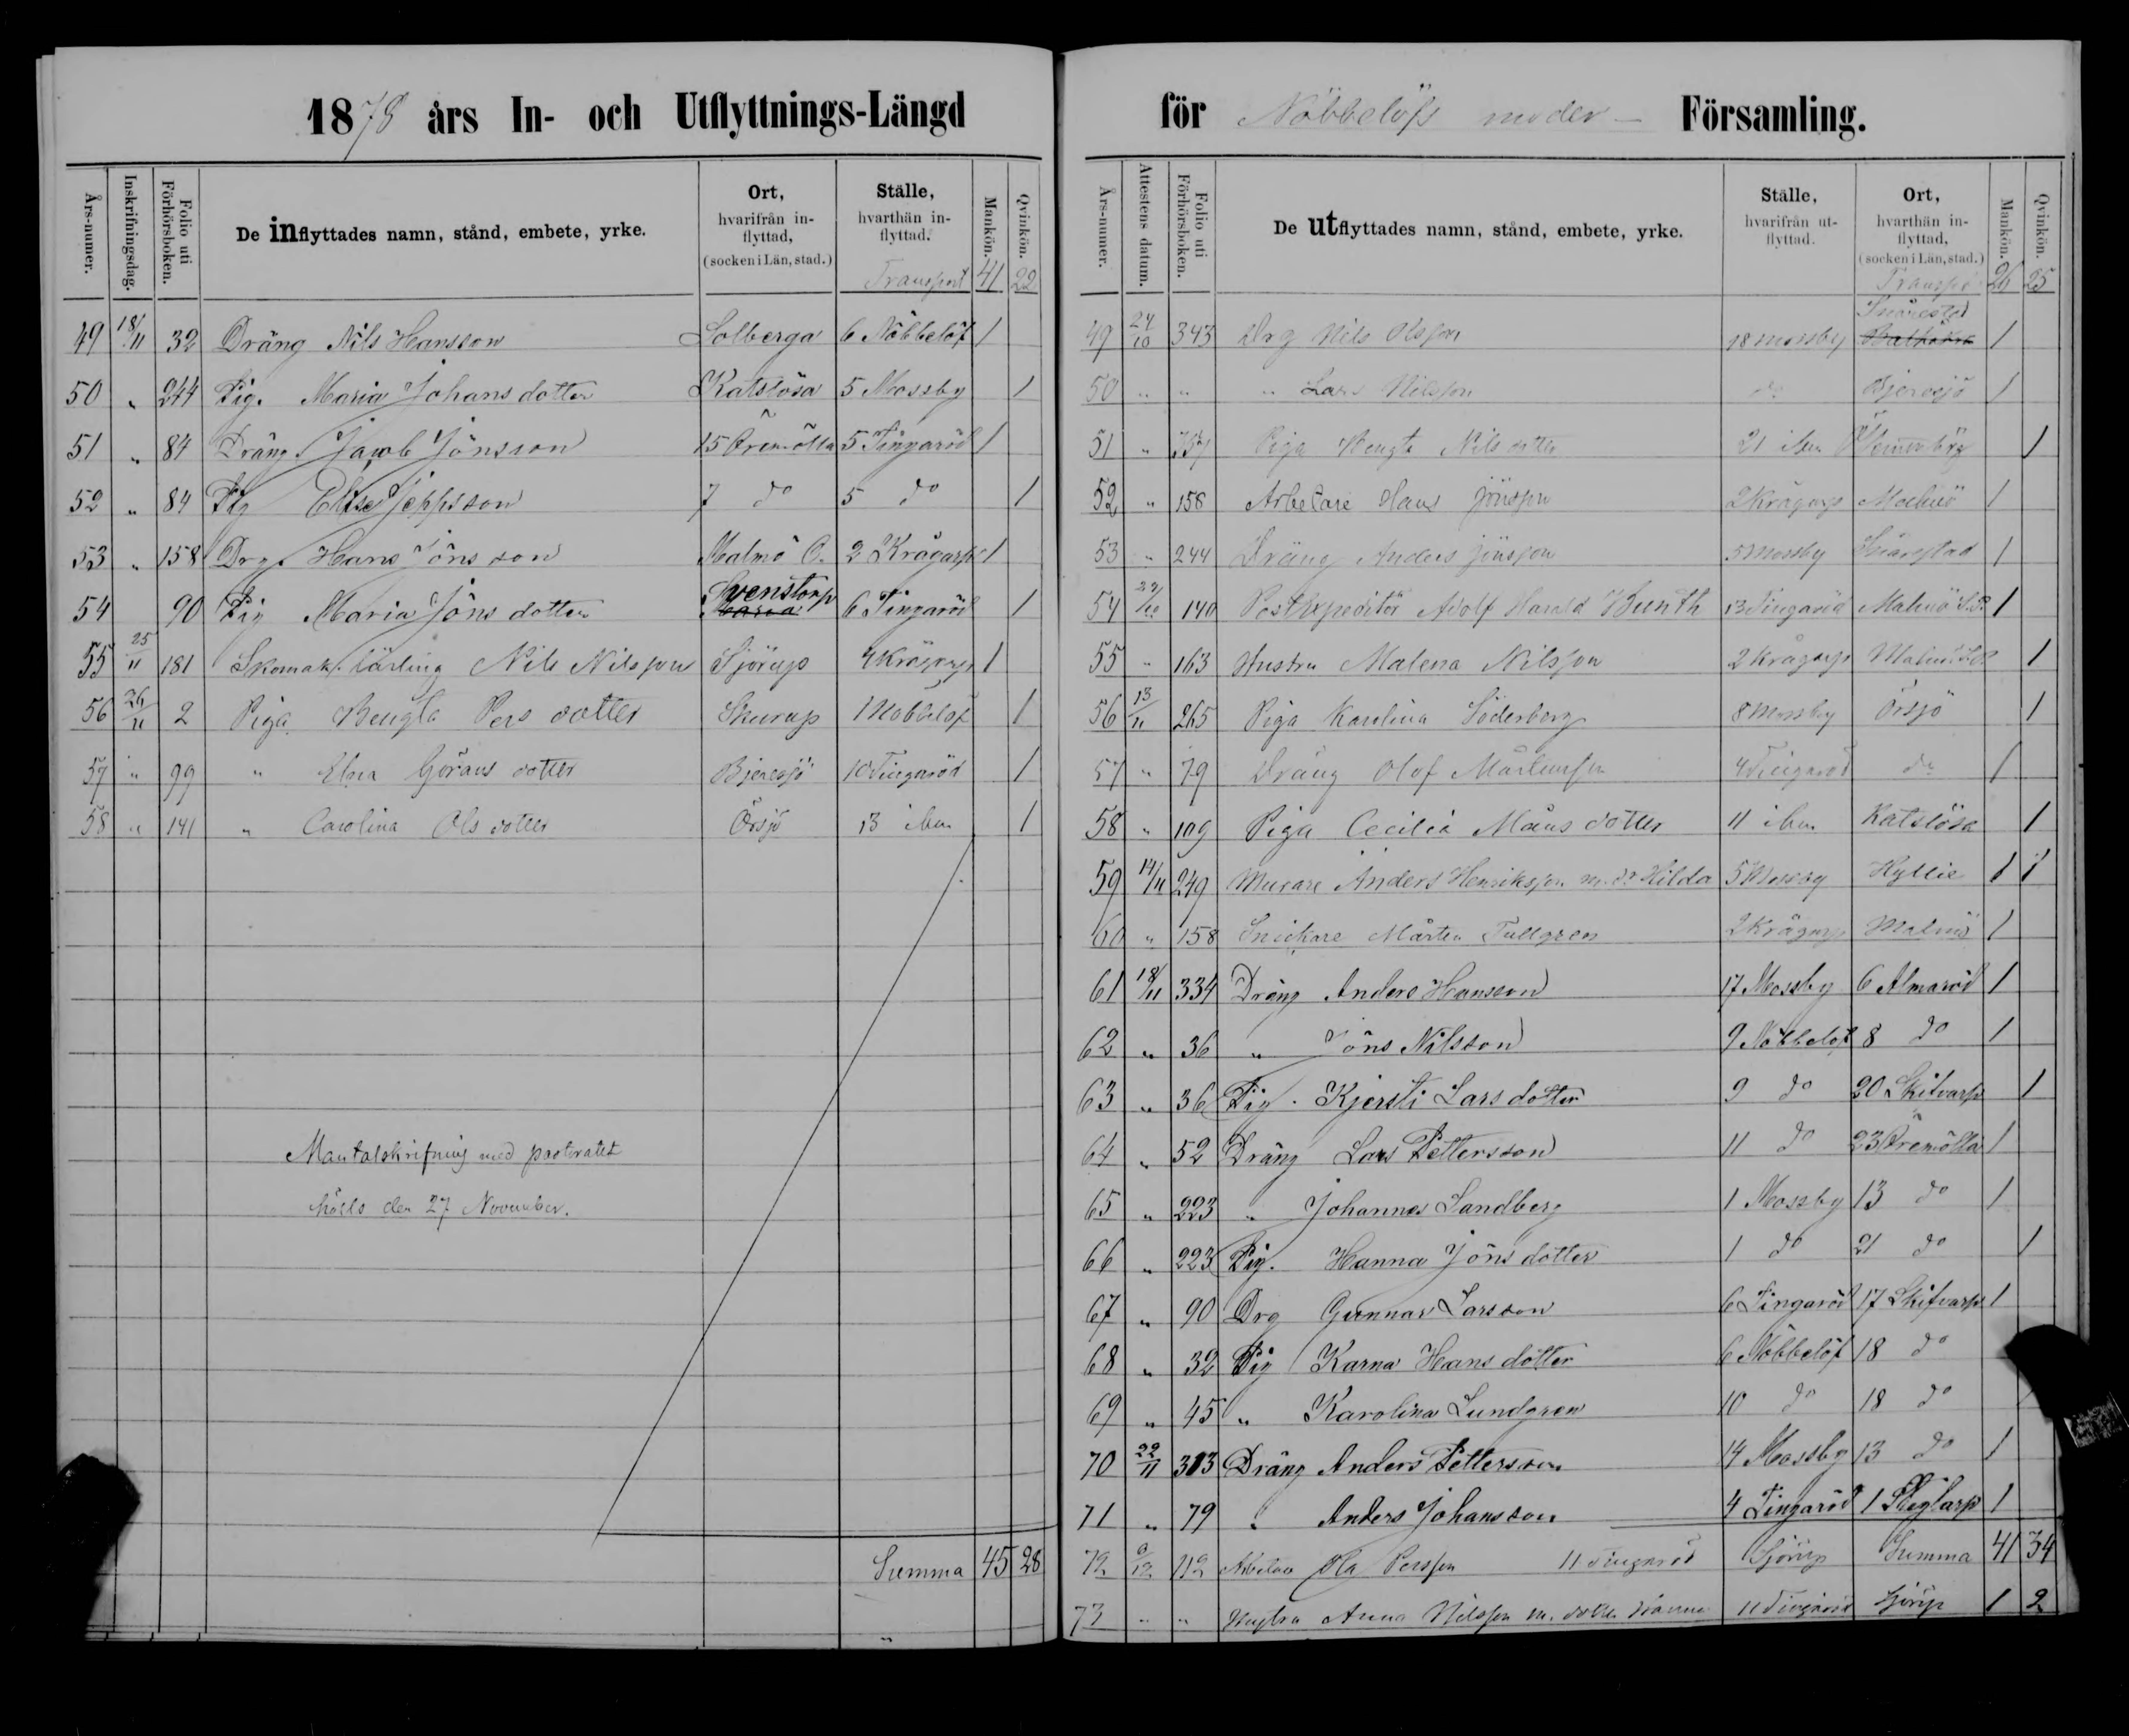 1878 års In- och Utflyttnings-Längd
Års-numer. Inskrifningsdag. Folio uti Förhörsboken. De inflyttades namn, stånd, embete, yrke. Ort, hvarifrån in-flyttad, (socken i Län, stad.) Ställe, hvarthän in-flyttad. Mankön. Qvinkön.
Transport 41 22
49 18/11 32 Dräng Nils Hansson Solberga 6 Nöbbelöf 1
50 " 244 Pig. Maria Johansdotter Katslösa 5 Mossby 1
51 " 84 Dräng Jacob Jönsson 15 Öremölla 5 Tingaröd 1
52 " 84 Pig Elise Jeppsson 7 do 5 do 1
53 " 158 Drg. Hans Jönsson Malmö C. 2 Krågarp 1
54 90 Pig Maria Jönsdotter Svenstorp 6 Tingaröd 1
55 25/11 181 Skomak. lärling Nils Nilsson Sjörup 4 Krågarp 1
56 26/11 2 Piga Bengta Persdotter Skurup 1 Nöbbelöf 1
57 " 99 " Elna Göransdotter Bjeresjö 10 Tingaröd 1
58 " 141 " Carolina Olsdotter Örsjö 13 ibm 1
Mantalskrifning med pastoratet
hölls den 27 November.
Summa 45 28
för Nöbbelöfs moder- Församling.
Års-numer. Attestens datum. Folio uti Förhörsboken. De utflyttades namn, stånd, embete, yrke. Ställe, hvarifrån ut-flyttad. Ort, hvarthän in-flyttad, (socken i Län, stad.) Mankön. Qvinkön.
Transpo 26 25
49 24/10 343 Drg Nils Olsson 18 Mossby Snårestad 1
50 " " " Lars Nilsson do Bjeresjö 1
51 " Piga Bengta Nilsdotter 21 ibm 1
52 " 158 Arbetare Hans Jönsson 2 Krågarp Malmö 1
53 " 244 Dräng Anders Jönsson 5 Mossby Snårestad 1
54 140 Postexpeditör Adolf Harald Bunth 13 Tingaröd Malmö 1
55 " 163 Hustru Malena Nilsson 2 Krågarp Malmö 1
56 13/11 265 Piga Karolina Söderberg 8 Mossby Örsjö 1
57 " 79 Dräng Olof Mårtensson 4 Tingaröd do 1
58 " 109 Piga Cecilia Månsdotter 11 ibm Katslösa 1
59 14/11 249 Murare Anders Henriksson m. dr Hilda 5 Mossby Hyllie 1 1
60 " 158 Snickare Mårten Tullgren 2 Krågarp Malmö 1
61 18/11 334 Dräng Anders Hansson 17 Mossby 6 Almaröd 1
62 " 36 " Jöns Nilsson 9 Nöbbelöf 8 do 1
63 " 36 Pig. Kjersti Larsdotter 9 do 20 Skifvarp 1
64 " 52 Dräng Lars Pettersson 11 do 23 Öremölla 1
65 " 223 " Johannes Sandberg 1 Mossby 13 do 1
66 " 223 Pig. Hanna Jönsdotter 1 do 21 do 1
67 " 90 Drg Gunnar Larsson 6 Tingaröd 17 Skifvarp 1
68 " 32 Pig Karna Hansdotter 6 Nöbbelöf 18 do
69 " 45 " Karolina Lundgren 10 do 18 do
70 22/11 313 Dräng Anders Pettersson 14 Mossby 13 do 1
71 " 79 " Anders Johansson 4 Tingaröd 1 Steglarp 1
72 112 Arbetare Ola Persson 11 Tingaröd Sjörup Summa 41 34
73 " " Hustru Anna Nilsson m. dotter Hanna 11 Tingaröd Sjörup 1 2